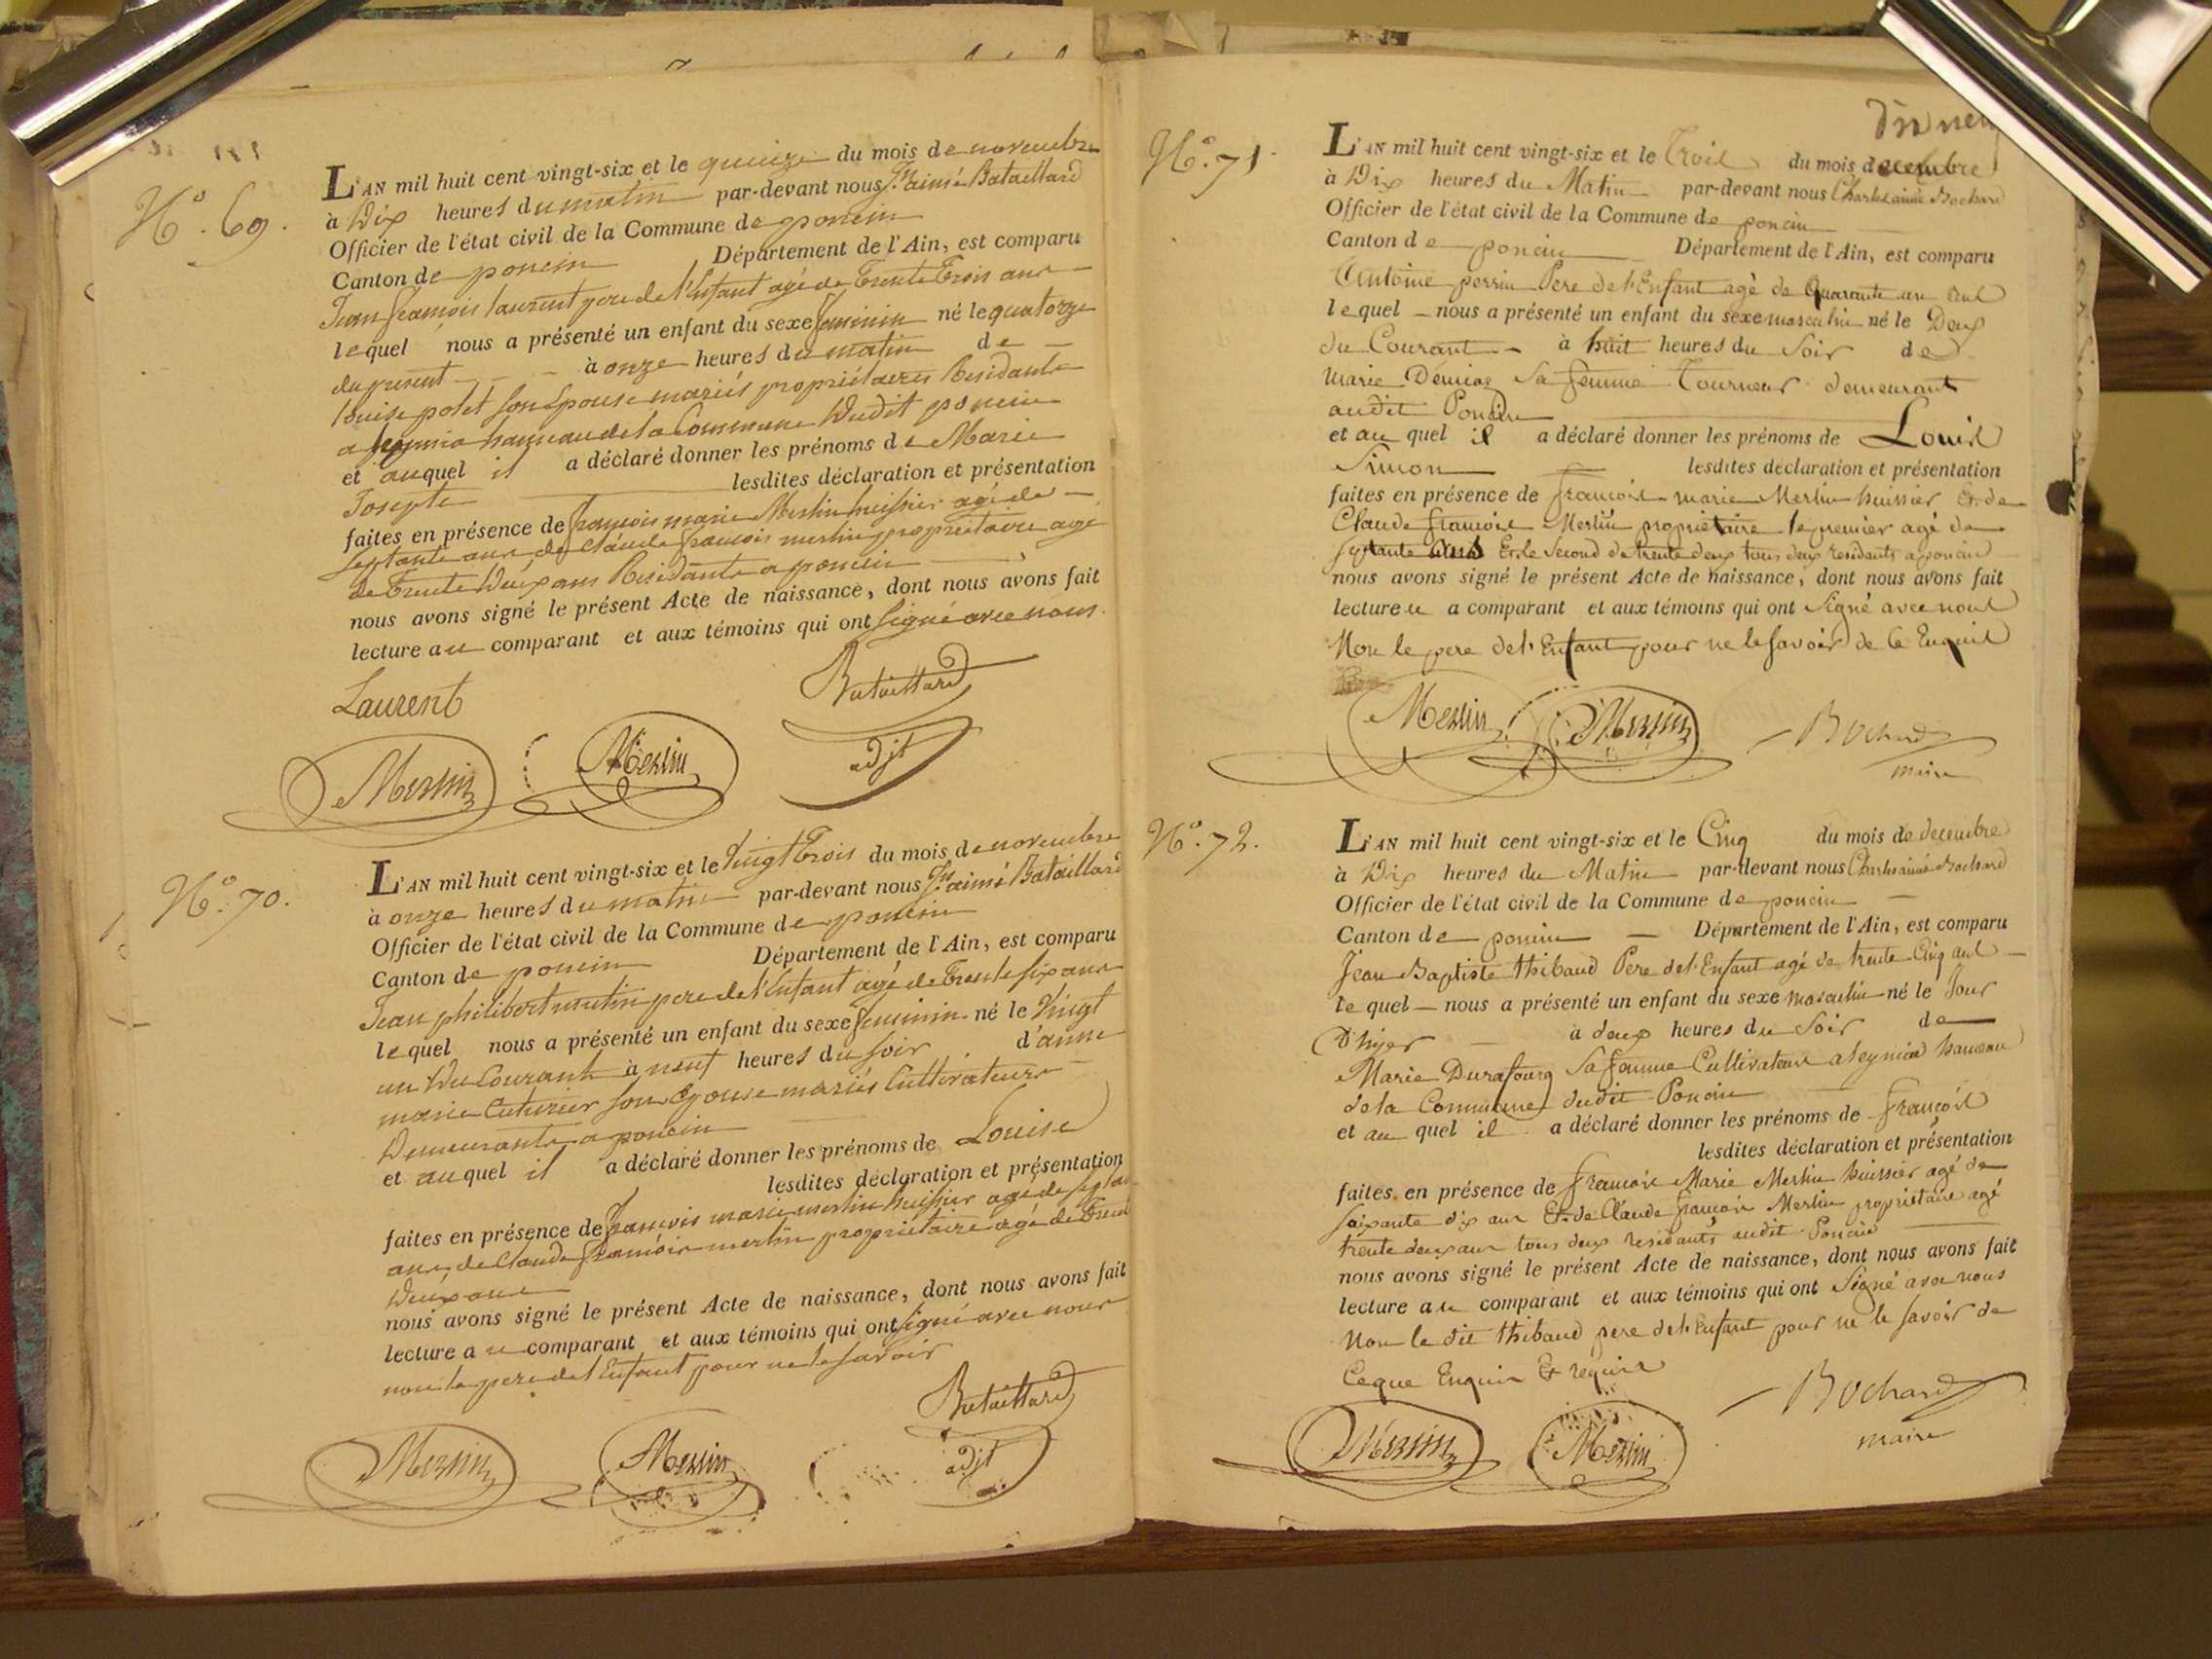 N.° 69.
L'AN mil huit cent vingt-six et le quinze du mois de novembre
à Dix heures du matin par-devant nous Jn. aimé Bataillard
Officier de l'état civil de la Commune de poncin
Canton de poncin Département de l'Ain, est comparu
Jean francois laurent pere de l'Enfant agé de Trente Trois ans
lequel nous a présenté un enfant du sexe feminin né le quatorze
du present à onze heures du matin de
louise polet son Epouse mariés propriétaires Residants
a hameau de la Commune Dudit poncin
et auquel il a déclaré donner les prénoms de Marie
Josepte lesdites déclaration et présentation
faites en présence de francois marie Merlin huissier agé de
septante ans de Claude francois merlin propriétaire agé
de Trente Deux ans Residants a poncin
nous avons signé le présent Acte de naissance, dont nous avons fait
lecture au comparant et aux témoins qui ont signé avec nous.
Laurent Bataillard
Merlin Merlin adjt
N.° 70.
L'AN mil huit cent vingt-six et le Vingt Trois du mois de novembre
à onze heures du matin par-devant nous Jn. aimé Bataillard
Officier de l'état civil de la Commune de poncin
Canton de poncin Département de l'Ain, est comparu
Jean philibert mutin pere de l'Enfant agé de Trente six ans
lequel nous a présenté un enfant du sexe feminin né le Vingt
un Du Courant à neuf heures du soir d'anne
marie Cuturier son Epouse mariés Cultivateurs
Demeurants a poncin
et auquel il a déclaré donner les prénoms de Louise
lesdites déclaration et présentation
faites en présence de francois marie merlin huissier agé de septante
ans, de Claude francois merlin propriétaire agé de Trente
Deux ans
nous avons signé le présent Acte de naissance, dont nous avons fait
lecture au comparant et aux témoins qui ont signé avec nous
non le pere de l'Enfant pour ne le savoir
Bataillard
Merlin Merlin adjt
N.° 71.
L'AN mil huit cent vingt-six et le Trois du mois decembre
à Dix heures du Matin par-devant nous Charles aimé Bochard
Officier de l'état civil de la Commune de poncin
Canton de poncin Département de l'Ain, est comparu
Antoine perrin Pere de l'Enfant agé de Quarante un ans
lequel nous a présenté un enfant du sexe masculin né le Deux
du Courant à huit heures du Soir de
Marie Demias Sa femme Tourneur demeurant
audit Poncin
et au quel il a déclaré donner les prénoms de Louis
Simon lesdites déclaration et présentation
faites en présence de francois marie Merlin huissier Et de
Claude francois Merlin propriétaire le premier agé de
septante ans Et le Second de trente deux tous deux residants a poncin
nous avons signé le présent Acte de naissance, dont nous avons fait
lecture u a comparant et aux témoins qui ont Signé avec nous
Non le pere de l'Enfant pour ne le savoir de Ce Enquis
Merlin Merlin Bochard
maire
N.° 72.
L'AN mil huit cent vingt-six et le Cinq du mois de decembre
à Dix heures du Matin par-devant nous Charles aimé Bochard
Officier de l'état civil de la Commune de poncin
Canton de poncin Département de l'Ain, est comparu
Jean Baptiste thibaud Pere de l'Enfant agé de trente Cinq ans
lequel nous a présenté un enfant du sexe masculin né le Jour
D'hyer à deux heures du Soir de
Marie Durafourg Sa femme Cultivateur a leymiat hameau
de la Commune dudit Poncin
et au quel il a déclaré donner les prénoms de francois
lesdites déclaration et présentation
faites en présence de francois Marie Merlin huissier agé de
soixante dix ans Et de Claude francois Merlin propriétaire agé
trente deux ans tous deux residants audit Poncin
nous avons signé le présent Acte de naissance, dont nous avons fait
lecture au comparant et aux témoins qui ont Signé avec nous
Non le dit thibaud pere de l'Enfant pour ne le savoir de
Ceque Enquis Et requis
Bochard
Merlin Merlin maire